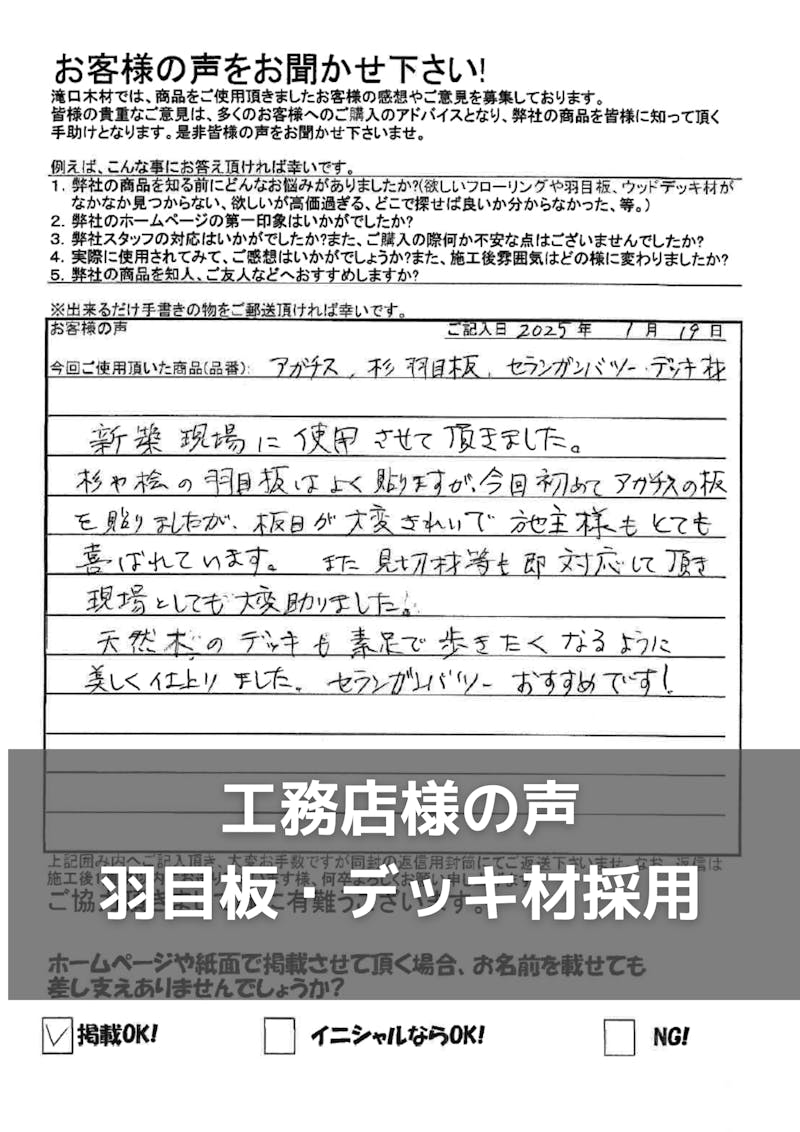 お客様の声をお聞かせ下さい!
滝口木材では、商品をご使用頂きましたお客様の感想やご意見を募集しております。
皆様の貴重なご意見は、多くのお客様へのご購入のアドバイスとなり、弊社の商品を皆様に知って頂く
手助けとなります。是非皆様の声をお聞かせ下さいませ。
例えば、こんな事にお答え頂ければ幸いです。
1. 弊社の商品を知る前にどんなお悩みがありましたか?(欲しいフローリングや羽目板、ウッドデッキ材が
なかなか見つからない、欲しいが高価過ぎる、どこで探せば良いか分からなかった、等。)
2. 弊社のホームページの第一印象はいかがでしたか?
3. 弊社スタッフの対応はいかがでしたか?また、ご購入の際何か不安な点はございませんでしたか?
4. 実際に使用されてみて、ご感想はいかがでしょうか?また、施工後雰囲気はどの様に変わりましたか?
5. 弊社の商品を知人、ご友人などへおすすめしますか?
※出来るだけ手書きの物をご郵送頂ければ幸いです。
お客様の声 ご記入日 2025 年 1 月 19 日
今回ご使用頂いた商品(品番): アガチス、杉 羽目板、セランガンバツー・デッキ材
新築現場に使用させて頂きました。
杉や桧の羽目板はよく貼りますが、今回初めてアガチスの板
を貼りましたが、板目が大変きれいで施主様もとても
喜ばれています。 また見切材等も即対応して頂き
現場としても大変助りました。
天然木のデッキも素足で歩きたくなるように
美しく仕上りました。セランガンバツーおすすめです!
工務店様の声
羽目板・デッキ材採用
上記囲み内へご記入頂き、大変お手数ですが同封の返信用封筒にてご返送下さいませ。なお、返信は
施工後
ホームページや紙面で掲載させて頂く場合、お名前を載せても
差し支えありませんでしょうか?
掲載OK! イニシャルならOK! NG!